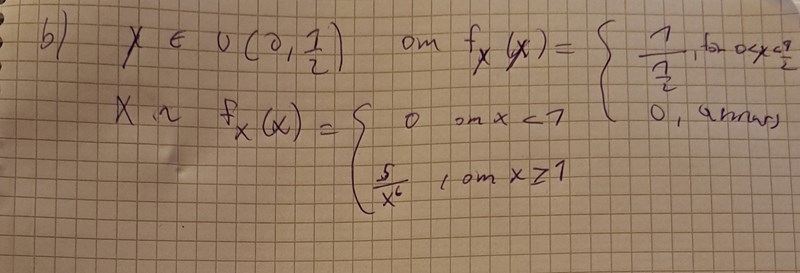 b) X ∈ U(0, 1/2) om f_X(x) = { 1/(1/2), för 0<x<1/2
0, annars
X ~ f_X(x) = { 0 om x < 1
5/x^6, om x ≥ 1